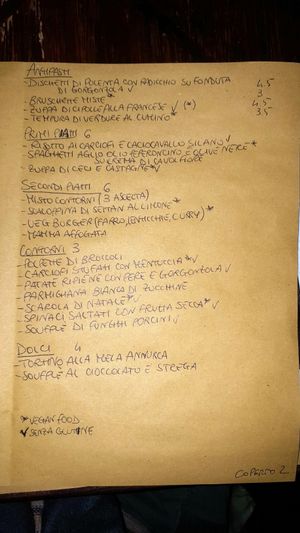 ANTIPASTI
- DISCHETTI DI POLENTA CON RADICCHIO SU FONDUTA DI GORGONZOLA √ 4.5
- BRUSCHETTE MISTE* 3
- ZUPPA DI CIPOLLE ALLA FRANCESE √ (*) 4.5
- TEMPURA DI VERDURE AL CUMINO* 3.5
PRIMI PIATTI 6
- RISOTTO AI CARCIOFI E CACIOCAVALLO SILANO √
- SPAGHETTI AGLIO OLIO PEPERONCINO E OLIVE NERE*
SU CREMA DI CAVOLFIORE
- ZUPPA DI CECI E CASTAGNE*√
SECONDI PIATTI 6
- MISTO CONTORNI (3 A SCELTA)
- SCALOPPINA DI SEITAN AL LIMONE*
- VEG BURGER (FARRO, LENTICCHIE, CURRY)*
- MAMMA AFFOGATA
CONTORNI 3
- POLPETTE DI BROCCOLI
- CARCIOFI STUFATI CON MENTUCCIA*√
- PATATE RIPIENE CON PERE E GORGONZOLA √
- PARMIGIANA BIANCA DI ZUCCHINE
- SCAROLA DI NATALE*√
- SPINACI SALTATI CON FRUTTA SECCA*√
- SOUFFLÈ DI FUNGHI PORCINI √
DOLCI 4
- TORTINO ALLA MELA ANNURCA
- SOUFFLÈ AL CIOCCOLATO E STREGA
* VEGAN FOOD
√ SENZA GLUTINE
COPERTO 2